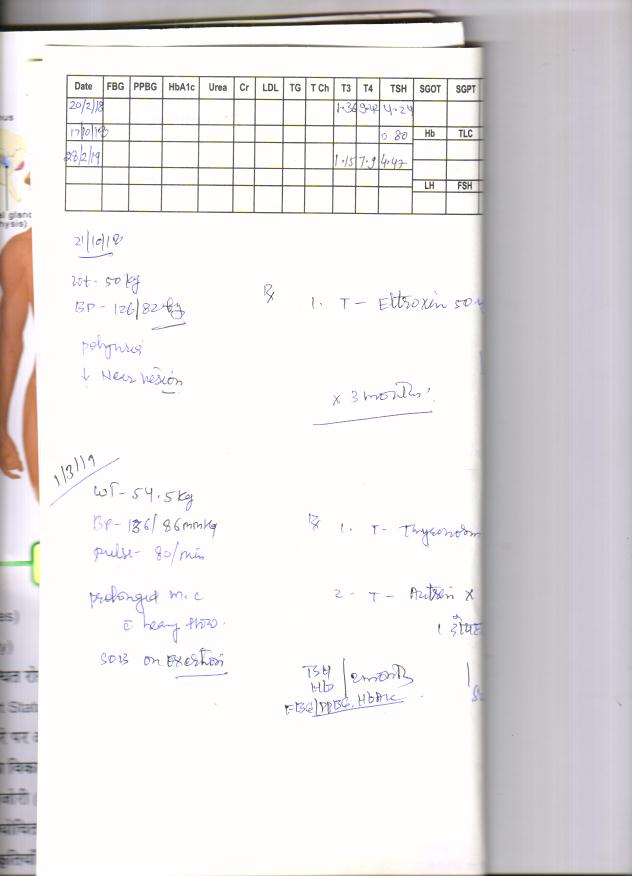 nus
al gland
hysis)
Date FBG PPBG HbA1c Urea Cr LDL TG T Ch T3 T4 TSH SGOT SGPT
20/2/18 1.36 9.42 4.24
17/10/18 80 Hb TLC
28/2/19 1.15 7.9 4.47
LH FSH
21/10/18
wt - 50 kg
BP - 126/82
Rx 1. T - Eltroxin 50
↓ Near vision
x 3 months
1/3/19
WT - 54.5 kg
BP - 136/86 mmHg
Rx 1. T - Thyronorm
pulse - 80/min
prolonged m.c 2 - T - Autrin x
c heavy flow.
SOB on exertion
TSH
Hb
FBG/PPBG, HbA1c
es)
y)
t Stat